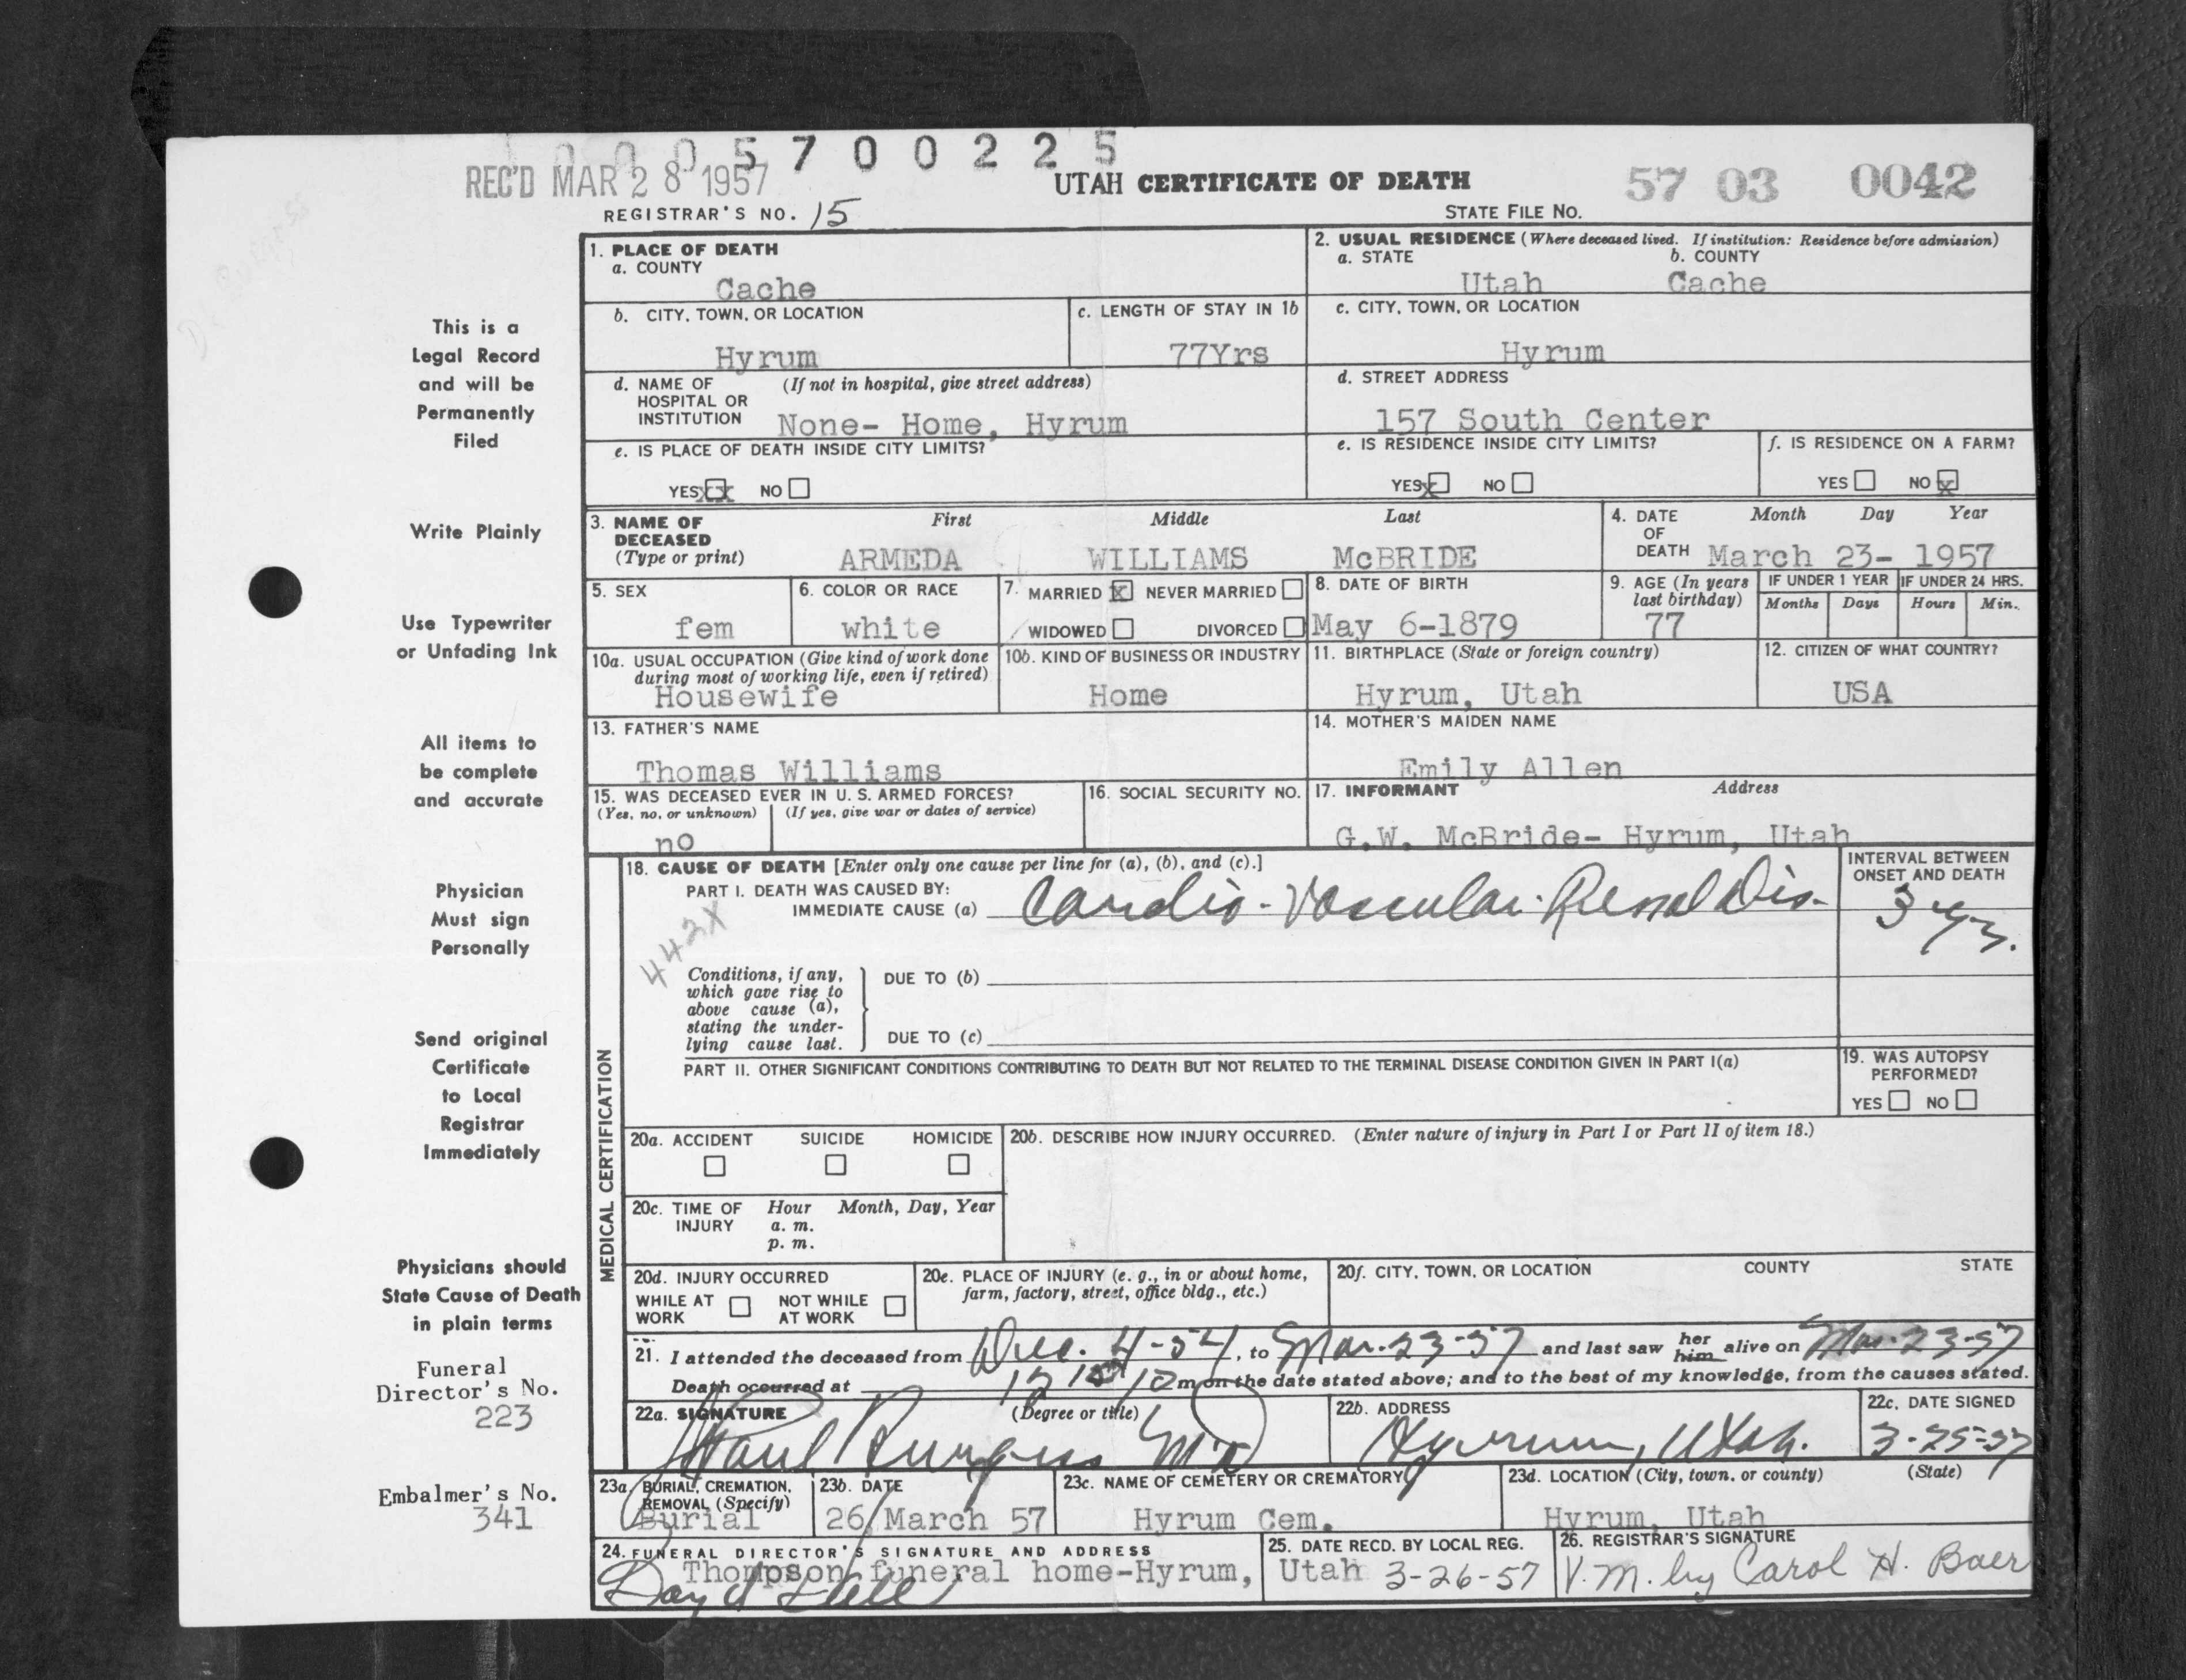 10005700225
REC'D MAR 28 1957
UTAH CERTIFICATE OF DEATH
57 03 0042
REGISTRAR'S NO. 15
STATE FILE NO.
This is a
Legal Record
and will be
Permanently
Filed
Write Plainly
Use Typewriter
or Unfading Ink
All items to
be complete
and accurate
Physician
Must sign
Personally
Send original
Certificate
to Local
Registrar
Immediately
Physicians should
State Cause of Death
in plain terms
Funeral
Director's No.
223
Embalmer's No.
341
1. PLACE OF DEATH
a. COUNTY
Cache
2. USUAL RESIDENCE (Where deceased lived. If institution: Residence before admission)
a. STATE b. COUNTY
Utah Cache
b. CITY, TOWN, OR LOCATION
Hyrum
c. LENGTH OF STAY IN 1b
77Yrs
c. CITY, TOWN, OR LOCATION
Hyrum
d. NAME OF (If not in hospital, give street address)
HOSPITAL OR
INSTITUTION None- Home, Hyrum
d. STREET ADDRESS
157 South Center
e. IS PLACE OF DEATH INSIDE CITY LIMITS?
YES XX NO
e. IS RESIDENCE INSIDE CITY LIMITS?
YES X NO
f. IS RESIDENCE ON A FARM?
YES NO X
3. NAME OF First Middle Last
DECEASED
(Type or print) ARMEDA WILLIAMS McBRIDE
4. DATE Month Day Year
OF
DEATH March 23- 1957
5. SEX
fem
6. COLOR OR RACE
white
7. MARRIED X NEVER MARRIED
WIDOWED DIVORCED
8. DATE OF BIRTH
May 6-1879
9. AGE (In years
last birthday)
77
IF UNDER 1 YEAR IF UNDER 24 HRS.
Months Days Hours Min.
10a. USUAL OCCUPATION (Give kind of work done
during most of working life, even if retired)
Housewife
10b. KIND OF BUSINESS OR INDUSTRY
Home
11. BIRTHPLACE (State or foreign country)
Hyrum, Utah
12. CITIZEN OF WHAT COUNTRY?
USA
13. FATHER'S NAME
Thomas Williams
14. MOTHER'S MAIDEN NAME
Emily Allen
15. WAS DECEASED EVER IN U. S. ARMED FORCES?
(Yes, no, or unknown) (If yes, give war or dates of service)
no
16. SOCIAL SECURITY NO.
17. INFORMANT Address
G.W. McBride- Hyrum, Utah
MEDICAL CERTIFICATION
18. CAUSE OF DEATH [Enter only one cause per line for (a), (b), and (c).]
PART I. DEATH WAS CAUSED BY:
IMMEDIATE CAUSE (a) Cardio-Vascular-Renal Dis-
INTERVAL BETWEEN
ONSET AND DEATH
3 yrs.
442X
Conditions, if any,
which gave rise to
above cause (a),
stating the under-
lying cause last.
DUE TO (b)
DUE TO (c)
PART II. OTHER SIGNIFICANT CONDITIONS CONTRIBUTING TO DEATH BUT NOT RELATED TO THE TERMINAL DISEASE CONDITION GIVEN IN PART I(a)
19. WAS AUTOPSY
PERFORMED?
YES NO
20a. ACCIDENT SUICIDE HOMICIDE
20b. DESCRIBE HOW INJURY OCCURRED. (Enter nature of injury in Part I or Part II of item 18.)
20c. TIME OF Hour Month, Day, Year
INJURY a. m.
p. m.
20d. INJURY OCCURRED
WHILE AT NOT WHILE
WORK AT WORK
20e. PLACE OF INJURY (e. g., in or about home,
farm, factory, street, office bldg., etc.)
20f. CITY, TOWN, OR LOCATION COUNTY STATE
21. I attended the deceased from Dec. 4-54, to Mar-23-57 and last saw her him alive on Mar-23-57
Death occurred at m on the date stated above; and to the best of my knowledge, from the causes stated.
22a. SIGNATURE (Degree or title)
Paul Burgess MD
22b. ADDRESS
Hyrum, Utah.
22c. DATE SIGNED
3-25-57
23a. BURIAL, CREMATION,
REMOVAL (Specify)
Burial
23b. DATE
26 March 57
23c. NAME OF CEMETERY OR CREMATORY
Hyrum Cem.
23d. LOCATION (City, town, or county) (State)
Hyrum, Utah
24. FUNERAL DIRECTOR'S SIGNATURE AND ADDRESS
Thompson funeral home-Hyrum, Utah
25. DATE RECD. BY LOCAL REG.
3-26-57
26. REGISTRAR'S SIGNATURE
V.M. by Carol H. Baer